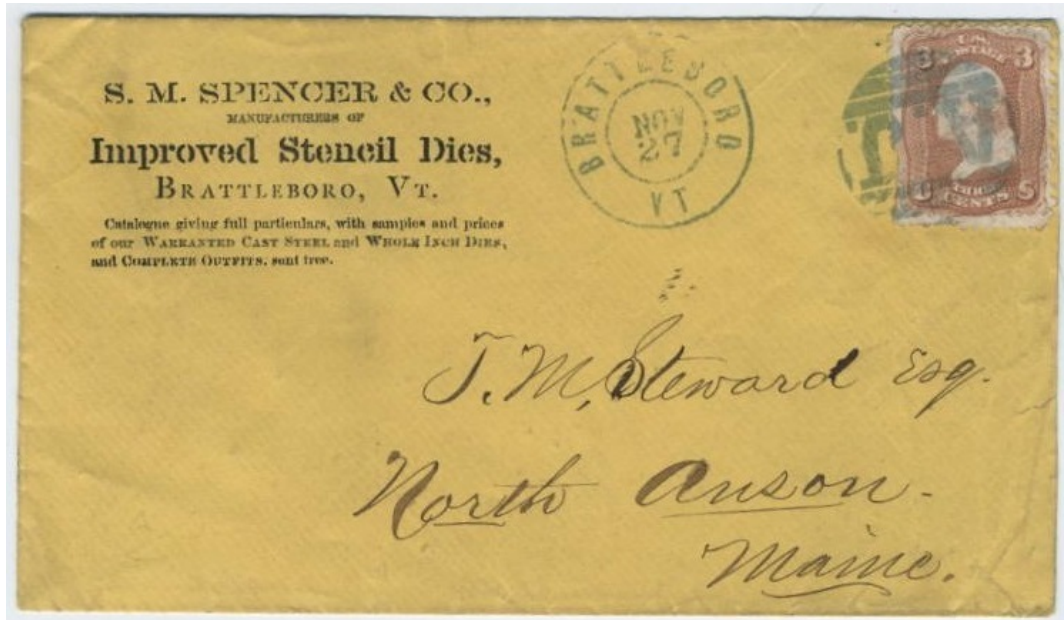 S. M. SPENCER & CO.,
MANUFACTURERS OF
Improved Stencil Dies,
BRATTLEBORO, VT.
Catalogue giving full particulars, with samples and prices
of our WARRANTED CAST STEEL and WHOLE INCH DIES,
and COMPLETE OUTFITS, sent free.
BRATTLEBORO
NOV
27
VT
U.S.
POSTAGE
3 3
THREE
CENTS
U S
T. M. Steward Esq.
North Anson.
Maine.